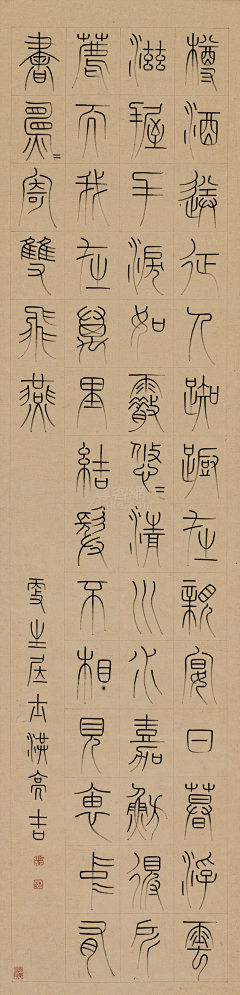 樽酒送征人踟蹰在親宴日暮浮雲
滋握手淚如霰悠〻清川水嘉魴得所
薦而我在萬里結髮不相見袖中有
書寄雙飛燕
更生居士洪亮吉